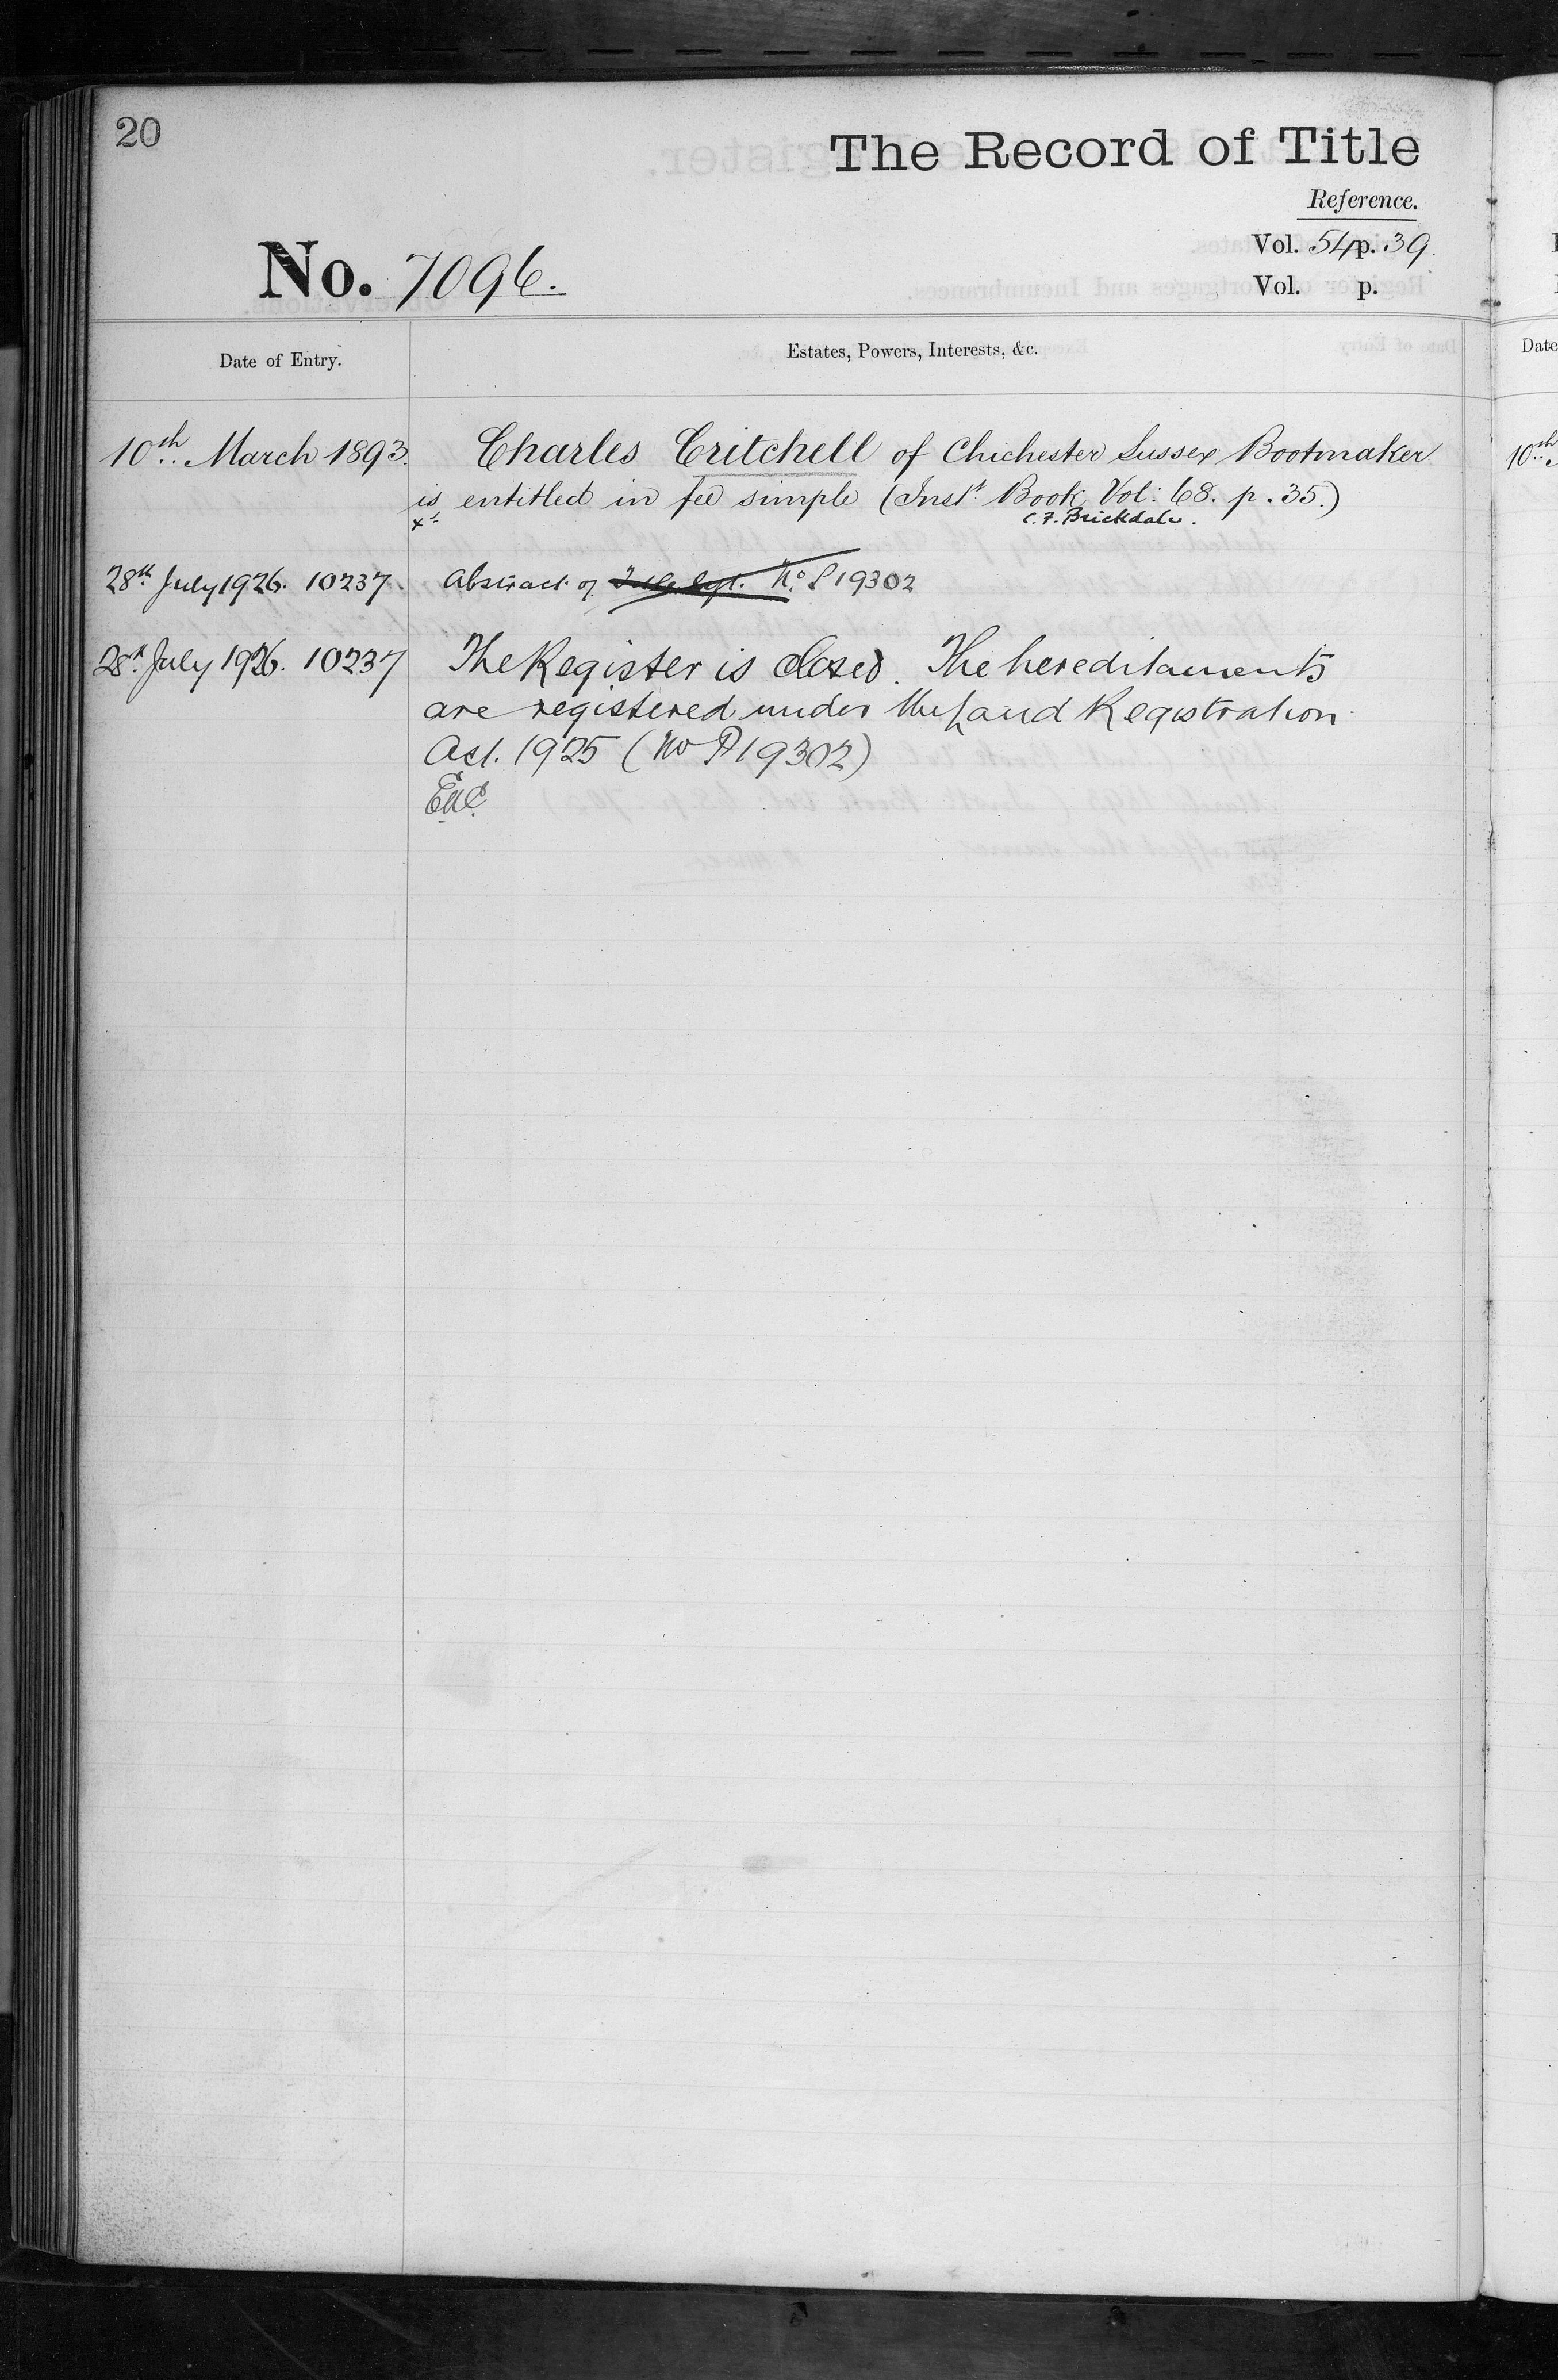 20
The Record of Title
Reference.
Vol. 54 p. 39.
No. 7096.
Vol. p.
Date of Entry.
Estates, Powers, Interests, &c.
Date
10th March 1893. Charles Critchell of Chichester Sussex Bootmaker
10th
is entitled in fee simple (Inst. Book Vol: 68. p. 35.)
C. F. Brickdale.
28th July 1926. 10237. Abstract of No. P19302
28th July 1926. 10237 The Register is closed. The hereditaments
are registered under the Land Registration
Act. 1925 (No P19302)